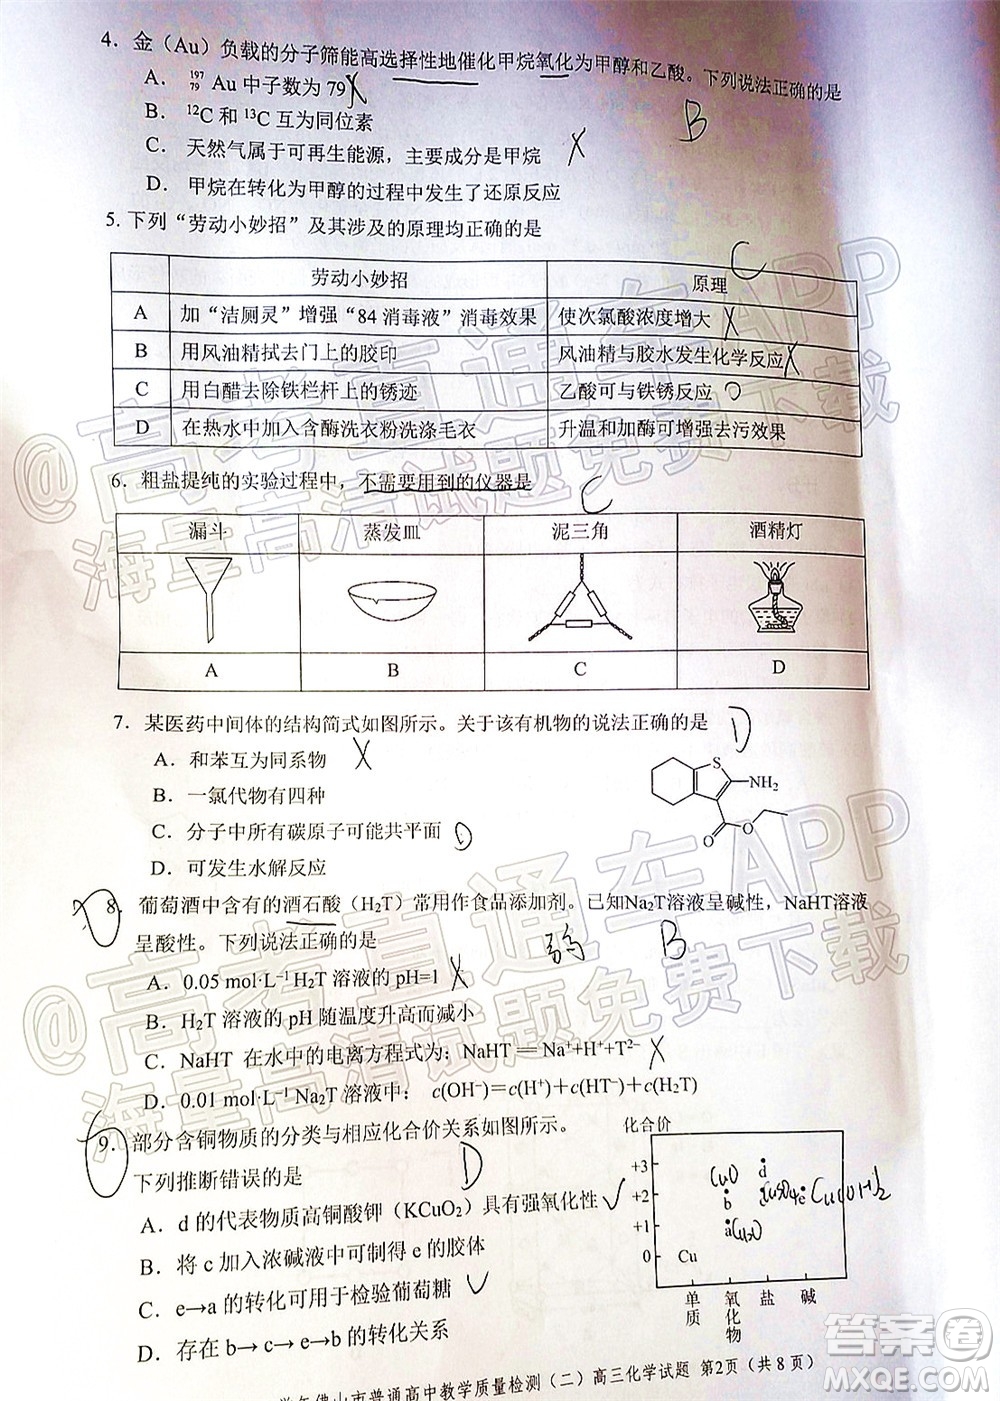 4．金（Au）负载的分子筛能高选择性地催化甲烷氧化为甲醇和乙酸。下列说法正确的是
A．¹⁹⁷₇₉Au 中子数为 79 X
B
B．¹²C 和 ¹³C 互为同位素
C．天然气属于可再生能源，主要成分是甲烷 X
D．甲烷在转化为甲醇的过程中发生了还原反应
5. 下列“劳动小妙招”及其涉及的原理均正确的是
C
劳动小妙招 原理
A 加“洁厕灵”增强“84 消毒液”消毒效果 使次氯酸浓度增大 X
B 用风油精拭去门上的胶印 风油精与胶水发生化学反应 X
C 用白醋去除铁栏杆上的锈迹 乙酸可与铁锈反应
D 在热水中加入含酶洗衣粉洗涤毛衣 升温和加酶可增强去污效果
6．粗盐提纯的实验过程中，不需要用到的仪器是
C
漏斗 蒸发皿 泥三角 酒精灯
A B C D
7．某医药中间体的结构简式如图所示。关于该有机物的说法正确的是 D
A．和苯互为同系物 X
B．一氯代物有四种
C．分子中所有碳原子可能共平面
D．可发生水解反应
S NH₂ O O
8．葡萄酒中含有的酒石酸（H₂T）常用作食品添加剂。已知Na₂T溶液呈碱性，NaHT溶液
呈酸性。下列说法正确的是 弱 B
A．0.05 mol·L⁻¹ H₂T 溶液的 pH=1 X
B．H₂T 溶液的 pH 随温度升高而减小
C．NaHT 在水中的电离方程式为：NaHT ＝ Na⁺+H⁺+T²⁻ X
D．0.01 mol·L⁻¹ Na₂T 溶液中： c(OH⁻)＝c(H⁺)+c(HT⁻)+c(H₂T)
9．部分含铜物质的分类与相应化合价关系如图所示。
下列推断错误的是 D
A．d 的代表物质高铜酸钾（KCuO₂）具有强氧化性 √
B．将 c 加入浓碱液中可制得 e 的胶体
C．e→a 的转化可用于检验葡萄糖 √
D．存在 b→c→e→b 的转化关系
化合价
+3 d
+2 b c e Cu(OH)₂
+1 a
0 Cu
单质 氧化物 盐 碱
佛山市普通高中教学质量检测（二）高三化学试题 第2页（共 8 页）
@高考直通车APP
海量高清试题免费下载
@高考直通车APP
海量高清试题免费下载
答案圈
MXQE.COM